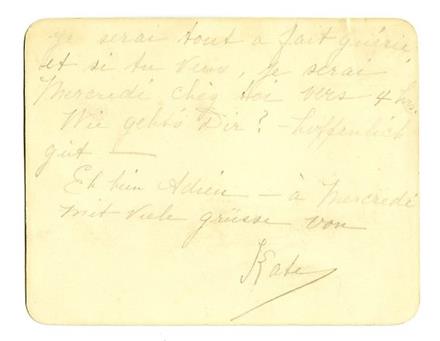 je serai tout a fait guérie
et si tu veux, je serai
Mercredi chez toi vers 4 hrs.
Wie geht's Dir? – hoffentlich
gut —
Eh bien Adieu — à Mercredi
mit viele grüsse von
Kate